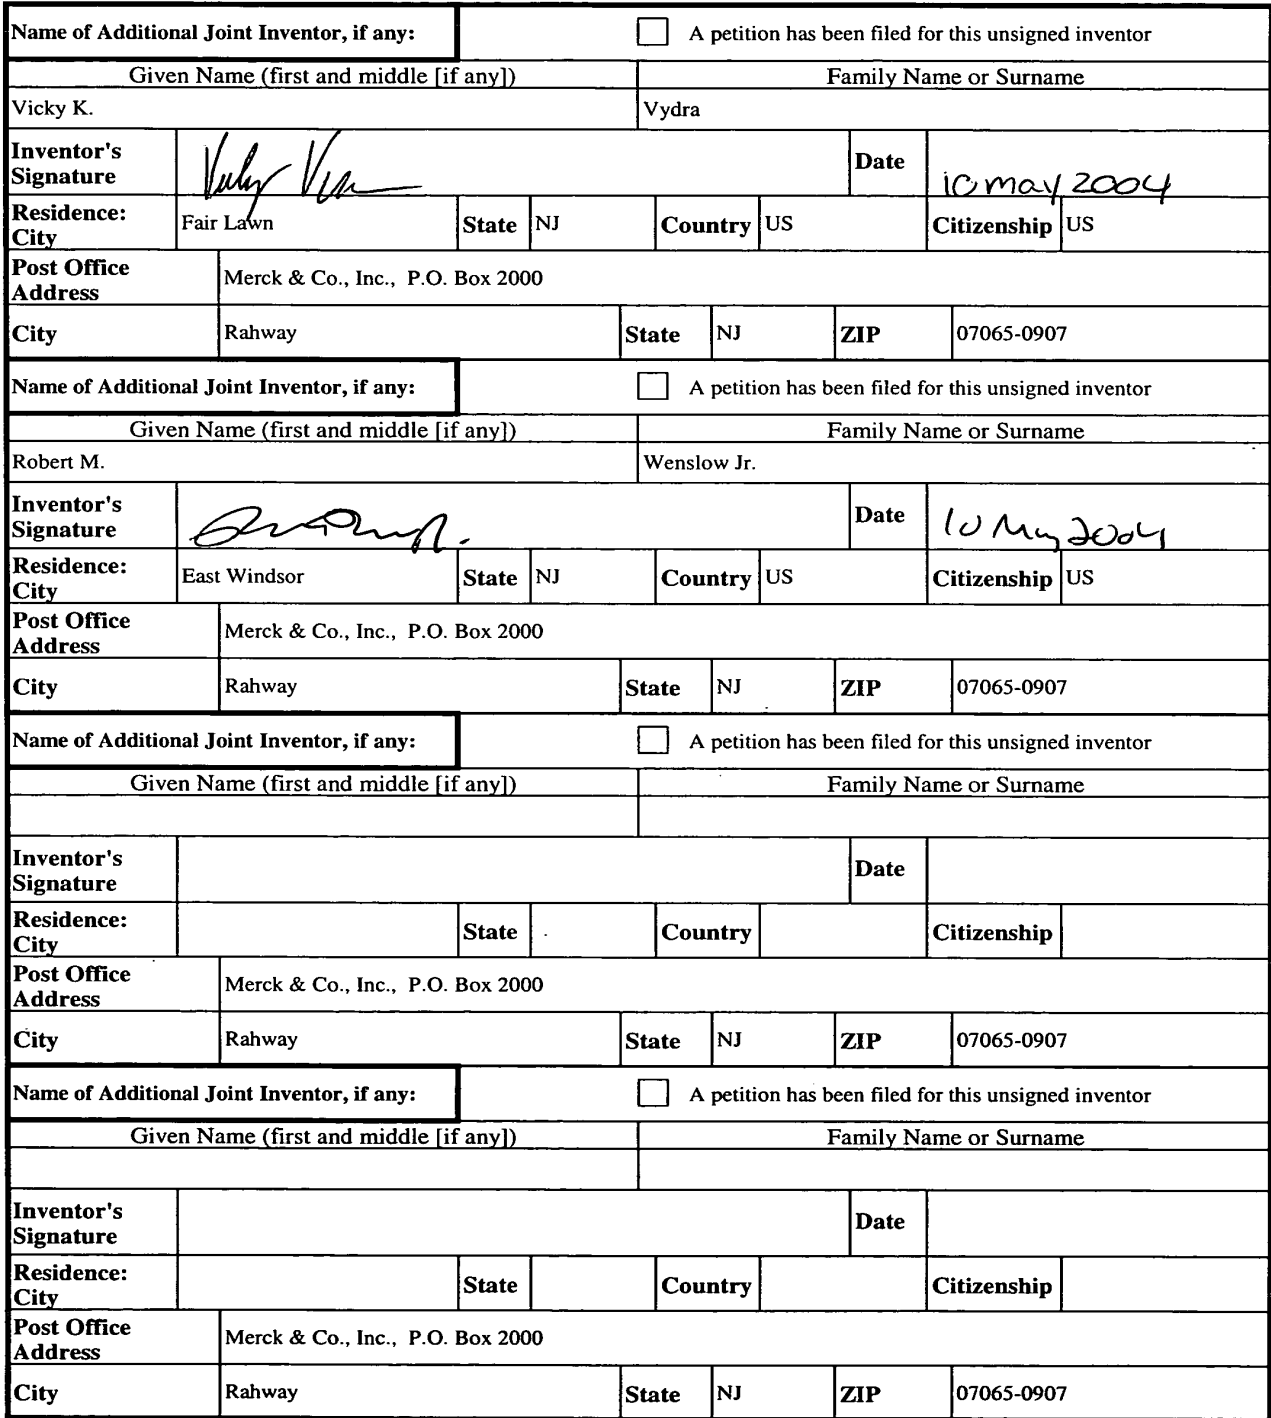 Name of Additional Joint Inventor, if any: A petition has been filed for this unsigned inventor
Given Name (first and middle [if any]) Family Name or Surname
Vicky K. Vydra
Inventor's Signature Date 10 may 2004
Residence: City Fair Lawn State NJ Country US Citizenship US
Post Office Address Merck & Co., Inc., P.O. Box 2000
City Rahway State NJ ZIP 07065-0907
Name of Additional Joint Inventor, if any: A petition has been filed for this unsigned inventor
Given Name (first and middle [if any]) Family Name or Surname
Robert M. Wenslow Jr.
Inventor's Signature Date 10 May 2004
Residence: City East Windsor State NJ Country US Citizenship US
Post Office Address Merck & Co., Inc., P.O. Box 2000
City Rahway State NJ ZIP 07065-0907
Name of Additional Joint Inventor, if any: A petition has been filed for this unsigned inventor
Given Name (first and middle [if any]) Family Name or Surname
Inventor's Signature Date
Residence: City State Country Citizenship
Post Office Address Merck & Co., Inc., P.O. Box 2000
City Rahway State NJ ZIP 07065-0907
Name of Additional Joint Inventor, if any: A petition has been filed for this unsigned inventor
Given Name (first and middle [if any]) Family Name or Surname
Inventor's Signature Date
Residence: City State Country Citizenship
Post Office Address Merck & Co., Inc., P.O. Box 2000
City Rahway State NJ ZIP 07065-0907